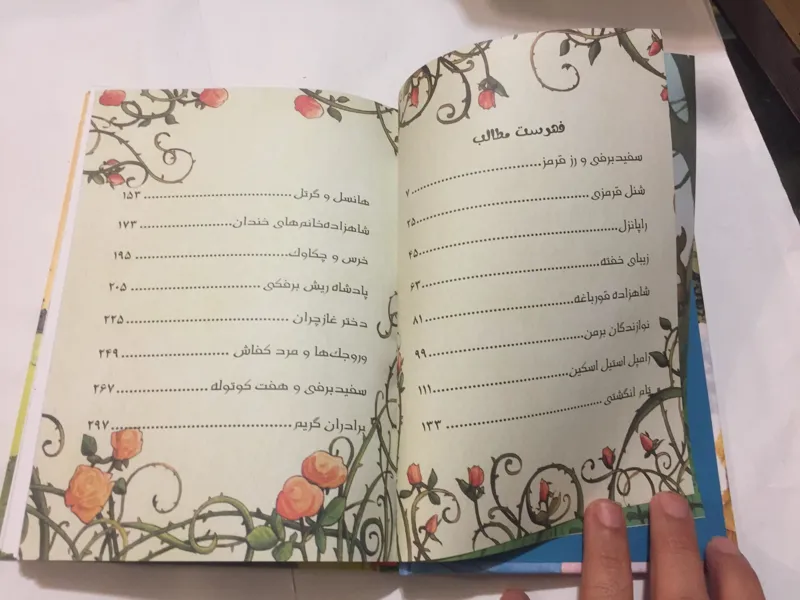 فهرست مطالب
سفیدبرفی و رز قرمز ........ ۷
شنل قرمزی ........ ۲۵
راپانزل ........ ۴۵
زیبای خفته ........ ۶۳
شاهزاده قورباغه ........ ۸۱
نوازندگان برمن ........ ۹۹
رامپل استیل اسکین ........ ۱۱۱
تام انگشتی ........ ۱۳۳
هانسل و گرتل ........ ۱۵۳
شاهزاده‌خانم‌های خندان ........ ۱۷۳
خرس و چکاوک ........ ۱۹۵
پادشاه ریش برفکی ........ ۲۰۵
دختر غازچران ........ ۲۲۵
وروجک‌ها و مرد کفاش ........ ۲۴۹
سفیدبرفی و هفت کوتوله ........ ۲۶۷
برادران گریم ........ ۲۹۷